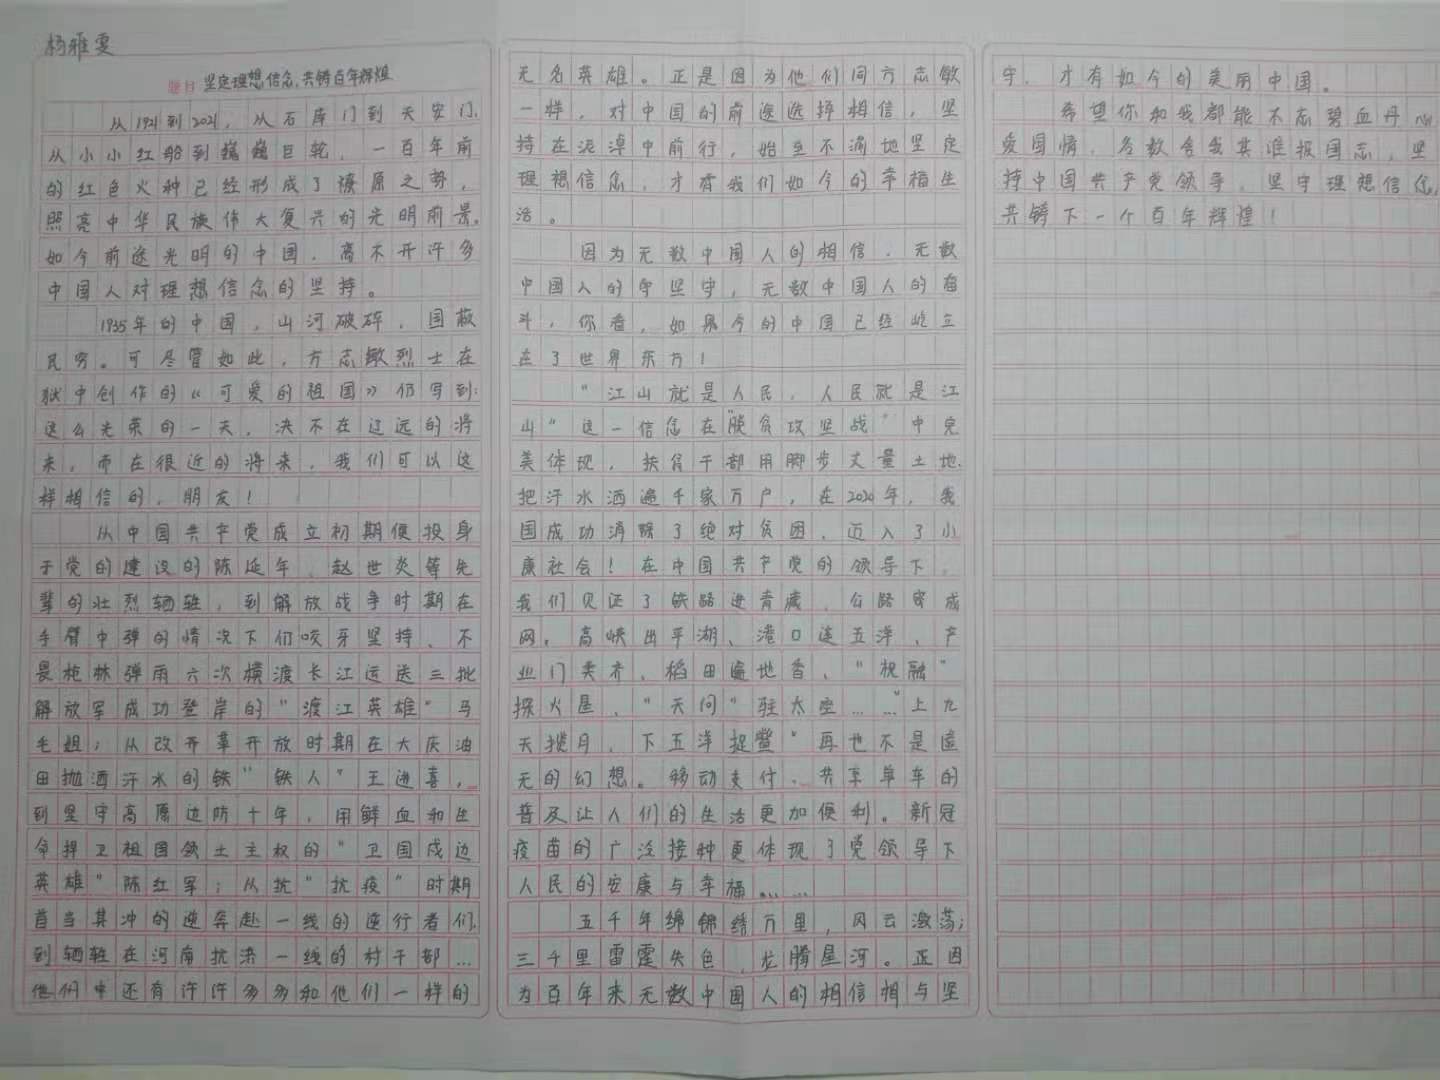 杨雅雯
题目 坚定理想信念,共铸百年辉煌
从1921到2021，从石库门到天安门,
从小小红船到巍巍巨轮，一百年前
的红色火种已经形成了燎原之势，
照亮中华民族伟大复兴的光明前景。
如今前途光明的中国，离不开许多
中国人对理想信念的坚持。
1935年的中国，山河破碎，国敝
民穷。可尽管如此，方志敏烈士在
狱中创作的《可爱的祖国》仍写到:
这么光荣的一天，决不在辽远的将
来，而在很近的将来，我们可以这
样相信的，朋友！
从中国共产党成立初期便投身
于党的建设的陈延年、赵世炎等先
辈的壮烈牺牲，到解放战争时期在
手臂中弹的情况下们咬牙坚持、不
畏枪林弹雨六次横渡长江运送三批
解放军成功登岸的“渡江英雄”马
毛姐；从改开革开放时期在大庆油
田抛洒汗水的铁“铁人”王进喜，
到坚守高原边防十年，用鲜血和生
命捍卫祖国领土主权的“卫国戍边
英雄”陈红军；从抗“抗疫”时期
首当其冲的逆奔赴一线的逆行者们,
到牺牲在河南抗洪一线的村干部…
他们中还有许许多多和他们一样的
无名英雄。正是因为他们同方志敏
一样，对中国的前途选择相信，坚
持在泥潭中前行，始至不渝地坚定
理想信念，才有我们如今的幸福生
活。
因为无数中国人的相信，无数
中国人的争坚守，无数中国人的奋
斗，你看，如果今的中国已经屹立
在了世界东方！
“江山就是人民，人民就是江
山”这一信念在“脱贫攻坚战”中完
美体现，扶贫干部用脚步丈量土地,
把汗水洒遍千家万户，在2020年，我
国成功消除了绝对贫困，迈入了小
康社会！在中国共产党的领导下，
我们见证了铁路进青藏、公路密成
网、高峡出平湖、港口连五洋、产
业门类齐、稻田遍地香、“祝融”
探火星、“天问”驻太空……“上九
天揽月，下五洋捉鳖”再也不是虚
无的幻想。移动支付、共享单车的
普及让人们的生活更加便利。新冠
疫苗的广泛接种更体现了党领导下
人民的安康与幸福……
五千年绵锦绣万里，风云激荡;
三千里雷霆失色，龙腾星河。正因
为百年来无数中国人的相信相与坚
守，才有如今的美丽中国。
希望你和我都能不忘碧血丹心
爱国情，名数舍我其谁报国志，坚
持中国共产党领导，坚守理想信念,
共铸下一个百年辉煌！